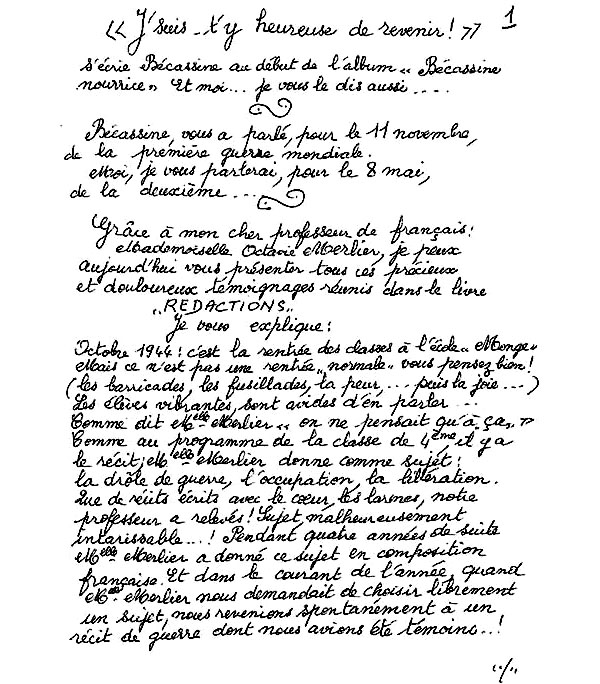 « J'suis-t'y heureuse de revenir ! » 1
s'écrie Bécassine au début de l'album « Bécassine
nourrice » Et moi... je vous le dis aussi ....
Bécassine, vous a parlé, pour le 11 novembre,
de la première guerre mondiale.
Moi, je vous parlerai, pour le 8 mai,
de la deuxième ...
Grâce à mon cher professeur de français :
Mademoiselle Octavie Merlier, je peux
aujourd'hui vous présenter tous ces précieux
et douloureux témoignages réunis dans le livre
"REDACTIONS"
Je vous explique :
Octobre 1944 : c'est la rentrée des classes à l'école « Monge »
Mais ce n'est pas une rentrée "normale" vous pensez bien !
(les barricades, les fusillades, la peur, ... puis la joie ...)
Les élèves vibrantes, sont avides d'en parler ...
Comme dit Melle Merlier « on ne pensait qu'à ça. »
Comme au programme de la classe de 4ème, il y a
le récit, Melle Merlier donne comme sujet :
la drôle de guerre, l'occupation, la libération.
Que de récits écrits avec le cœur, les larmes, notre
professeur a relevés ! Sujet, malheureusement
intarissable...! Pendant quatre années de suite
Melle Merlier a donné ce sujet en composition
française. Et dans le courant de l'année, quand
Melle Merlier nous demandait de choisir librement
un sujet, nous revenions spontanément à un
récit de guerre dont nous avions été témoins..!
"/"